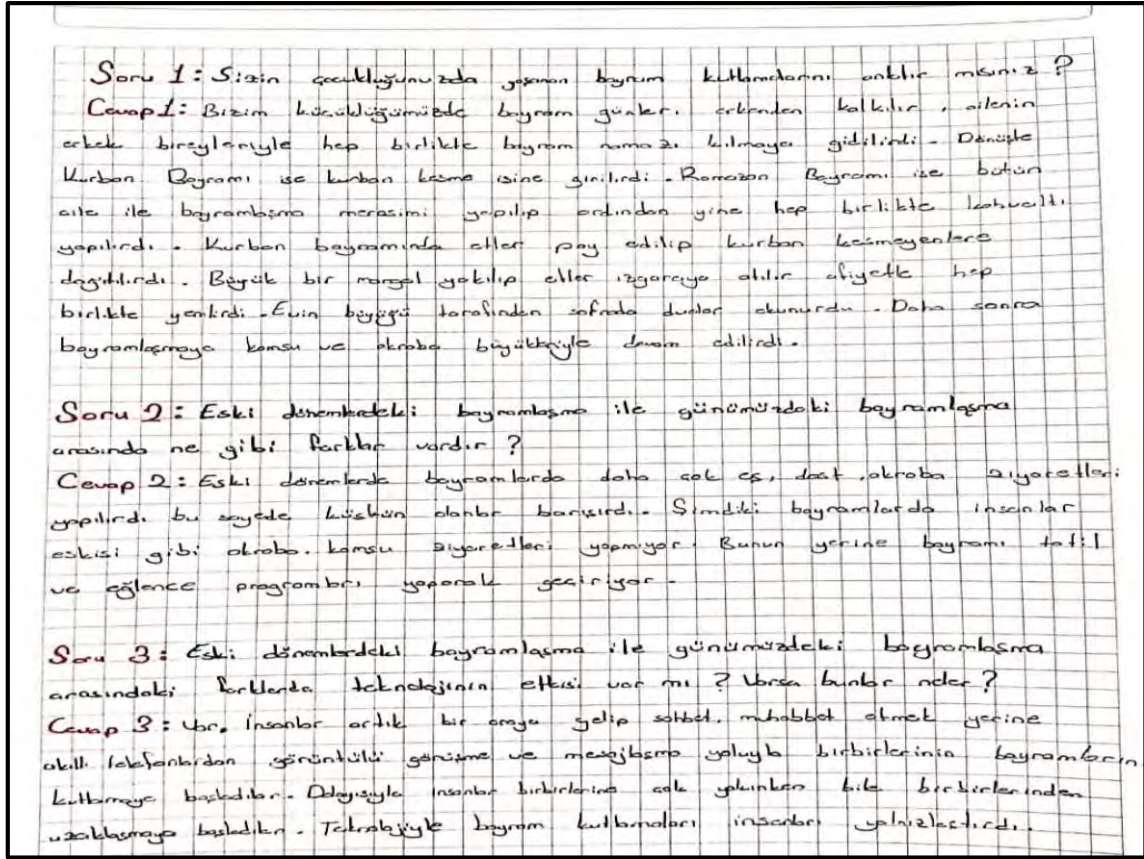 Soru 1: Sizin çocukluğunuzda yaşanan bayram kutlamalarını anlatır mısınız ?
Cevap 1: Bizim küçüklüğümüzde bayram günleri erkenden kalkılır, ailenin
erkek bireyleriyle hep birlikte bayram namazı kılmaya gidilirdi. Dönüşte
Kurban Bayramı ise kurban kesme işine girilirdi. Ramazan Bayramı ise bütün
aile ile bayramlaşma merasimi yapılıp ardından yine hep birlikte kahvaltı
yapılırdı. Kurban bayramında etler pay edilip kurban kesmeyenlere
dağıtılırdı. Büyük bir mangal yakılıp etler ızgaraya atılır afiyetle hep
birlikte yenilirdi. Evin büyüğü tarafından sofrada dualar okunurdu. Daha sonra
bayramlaşmaya komşu ve akraba büyükleriyle devam edilirdi.
Soru 2: Eski dönemlerdeki bayramlaşma ile günümüzdeki bayramlaşma
arasında ne gibi farklar vardır ?
Cevap 2: Eski dönemlerde bayramlarda daha çok eş, dost, akraba ziyaretleri
yapılırdı bu sayede küskün olanlar barışırdı. Şimdiki bayramlarda insanlar
eskisi gibi akraba, komşu ziyaretleri yapmıyor. Bunun yerine bayramı tatil
ve eğlence programları yaparak geçiriyor.
Soru 3: Eski dönemlerdeki bayramlaşma ile günümüzdeki bayramlaşma
arasındaki farklarda teknolojinin etkisi var mı ? Varsa bunlar neler ?
Cevap 3: Var. İnsanlar artık bir araya gelip sohbet, muhabbet etmek yerine
akıllı telefonlardan görüntülü görüşme ve mesajlaşma yoluyla birbirlerinin bayramların
kutlamaya başladılar. Dolayısıyla insanlar birbirlerine çok yakınken bile birbirlerinden
uzaklaşmaya başladılar. Teknolojiyle bayram kutlamaları insanları yalnızlaştırdı.